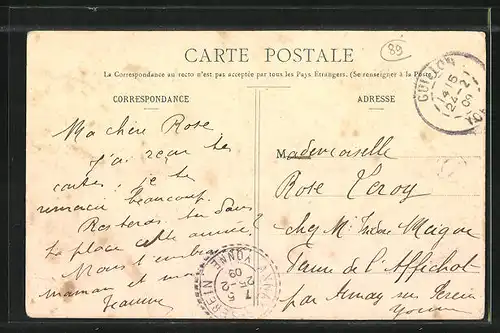 89
CARTE POSTALE
La Correspondance au recto n'est pas acceptée par tous les Pays Etrangers. (Se renseigner à la Poste.)
CORRESPONDANCE
ADRESSE
GUILLON
14-15
24-2
09
Ma chère Rose
J'ai reçu tes
cartes, je te
remercie beaucoup.
Resteras-tu dans
ta place cette année?
Nous t'embrassons
maman et moi
Jeanne
Mademoiselle
Rose Veroy
chez Mr
Ferme de l'Affichot
par Annay sur Serein
Yonne
7
25-2
09
YONNE